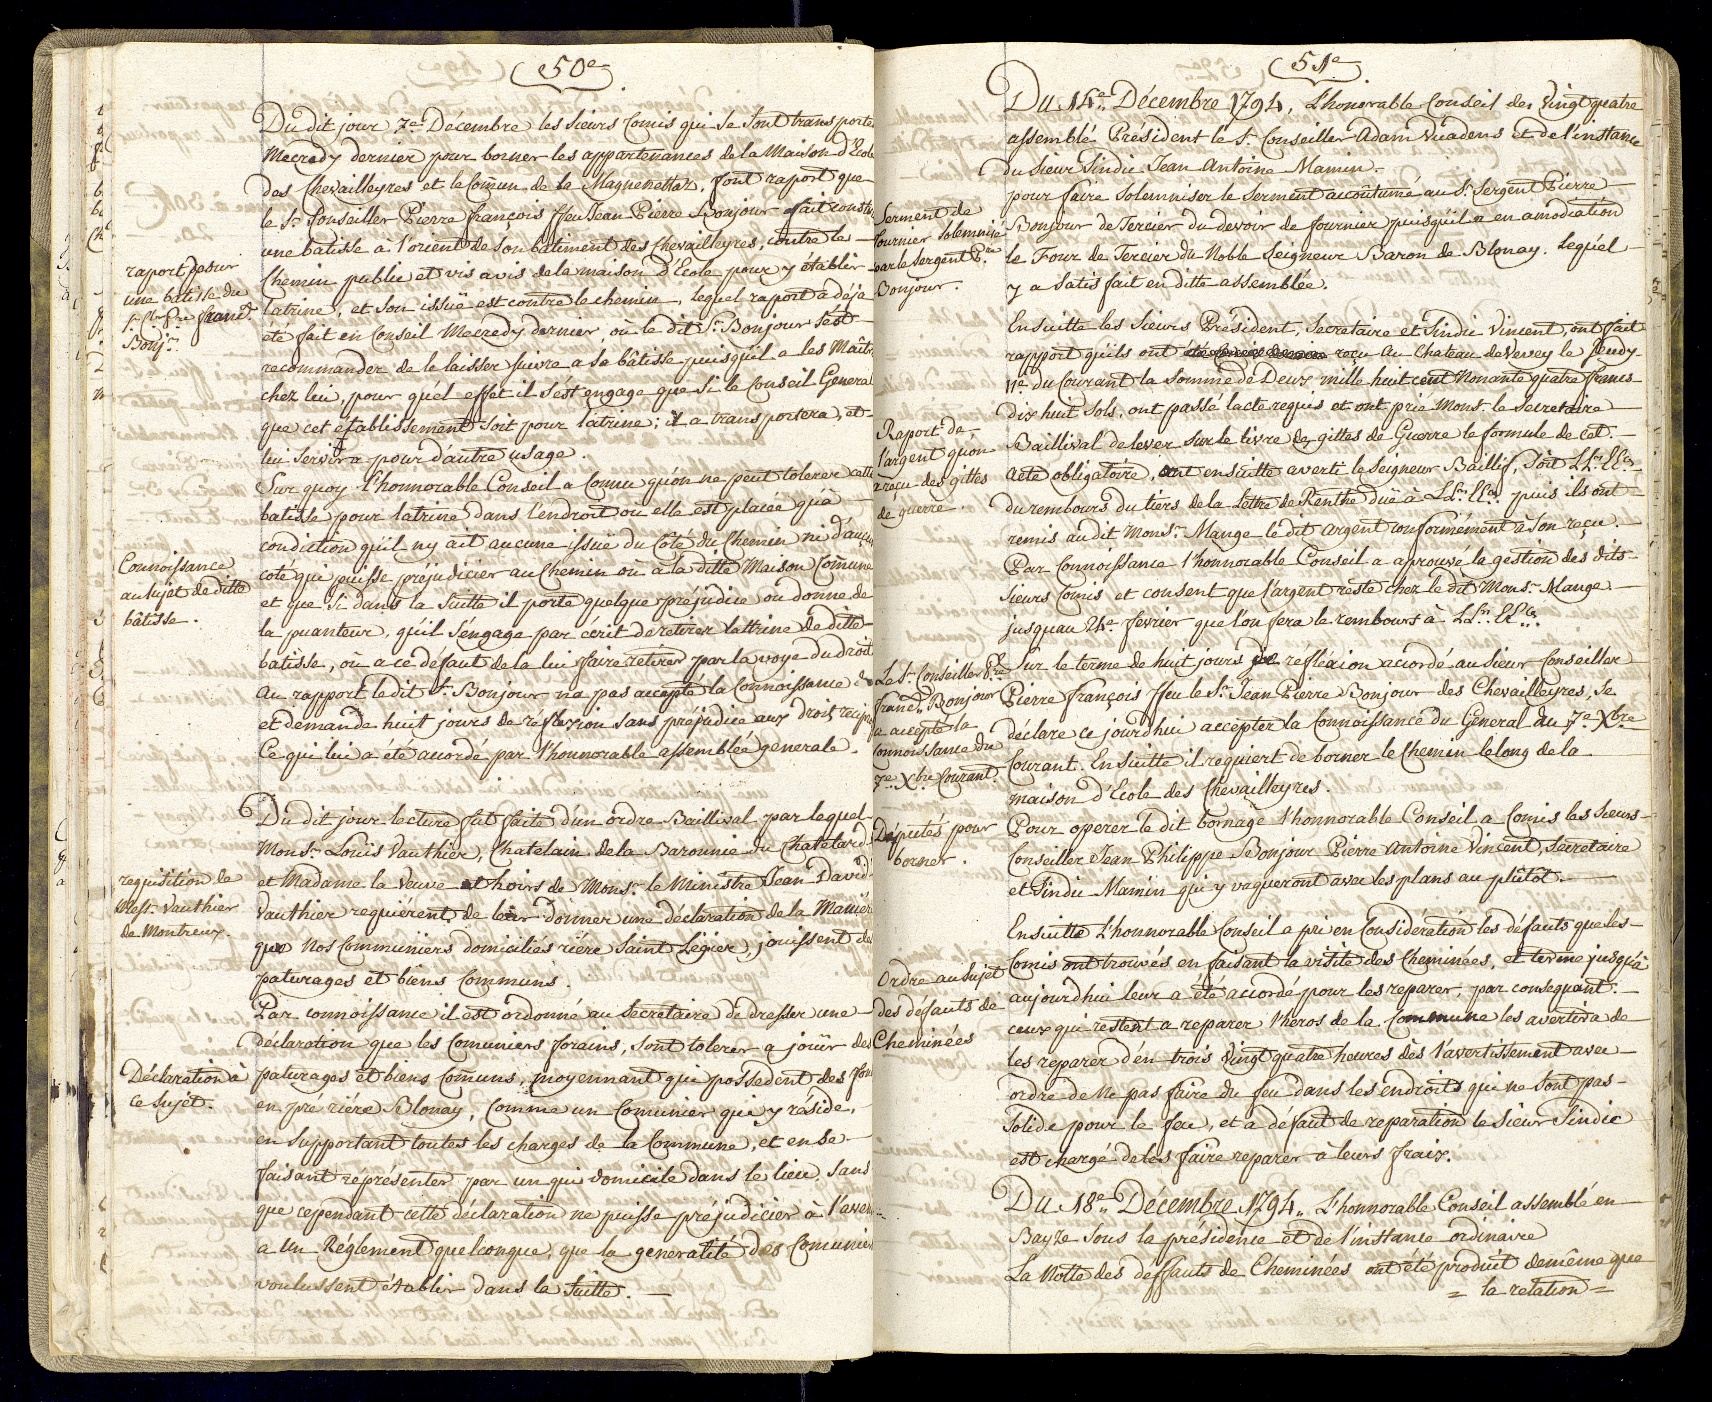 50e
Du dit jour 7e Décembre les Sieurs Comis qui se sont transporté
Mecredy dernier pour borner les appartenances de la Maison d'Ecole
des Chevailleyres et le Comun de la Maguenettaz, font raport que
le Sr Conseiller Pierre François ffeu Jean Pierre Bonjour fait constr
une batisse à l'orient de son bâtiment des Chevailleyres, contre le
Chemin public et vis avis de la maison d'Ecole pour y établir
latrine, et son issuë est contre le chemin, lequel raport a déja
été fait en Conseil Mecredy dernier où le dit Sr Bonjour s'est
recommander de le laisser suivre a sa bâtisse puisqu'il a les Maîtr
chez lui, pour quél effet il s'est engagé que si le Conseil General
que cet établissement soit pour latrine; il a transportera, et
lui servira pour d'autre usage.
Sur quoy l'honnorable Conseil a Connu qu'on ne peut tolerer cette
batisse pour latrine dans l'endroit où elle est placée qu'à
condiction qu'il ny ait aucune issuë du Côté du Chemin ni d'aucun
coté qui puisse préjudicier au Chemin où à la ditte Maison Comune
et que si dans la Suitte il porte quelque préjudice ou donne de
la puanteur, qu'il s'engage par écrit de retirer lattrine de ditte
batisse, où a ce défaut de la lui faire retirer par la voye du droit
Au rapport le dit Sr Bonjour n'a pas accepté la Connoissance
et demande huit jours de réflexion sans préjudice aux droit recipr
Ce qui lui a été acordé par l'honnorable assemblée generale.
raport pour
une batisse du
Sr Cller Pre Franc.
Bonjr.
Connoissance
au sujet de ditte
bâtisse.
Du dit jour lecture fut faite d'un ordre Baillival par lequel
Monsr Louis Vauthier, Chatelain de la Baronnie du Chatelard
et Madame la Veuve et hoirs de Monsr le Ministre Jean David
Vauthier requiérent de leur donner une déclaration de la Manière
que Nos Communiers domiciliés riére Saint Légier, jouissent des
paturages et biens Communs.
Par connoissance il est ordonné au Secretaire de dresser une
déclaration que les Comuniers forains, sont tolerer a jouir des
paturages et biens Comuns, moyennant qui possedent des fon
en pré riére Blonay, Comme un Comunier qui y réside,
en supportant toutes les charges de la Commune, et en se
faisant réprésenter par un qui domicile dans le lieu, sans
que cependant cette déclaration ne puisse préjudicier à l'aveni
a Un Réglement quelconque, que la generalité des Comunie
voulussent établir dans la suitte.
requisition de
Messr. Vauthier
de Montreux.
Déclaration à
ce sujet.
51e
Du 14e Décembre 1794, L'honorable Conseil des Vingtquatre
assemblé Président le Sr Conseiller Adam Vuadens et de l'instance
du Sieur Sindic Jean Antoine Mamin.
pour faire solemniser le Serment accoûtumé au Sr Sergent Pierre
Bonjour de Tercier du devoir de fournier puisqu'il a en amodiation
le Four de Tercier du Noble Seigneur Baron de Blonay. Lequel
y a satisfait en ditte assemblée.
Serment de
fournier solemnisé
par le Sergent Pre
Bonjour.
Ensuitte les Sieurs Président, Secretaire et Sindic Vincent, ont fait
rapport qu'ils ont reçu Au Chateau de Vevey le Jeudy
11e du Courant la Somme de Deux mille huit cent Nonante quatre francs
dix huit Sols, ont passé l'acte requis et ont prié Monsr le Secretaire
Baillival de lever sur le livre des gittes de Guerre la formule de cet
Acte obligatoire, ont ensuitte averti le Seigneur Baillif, soit LLrs EEces
du rembours du tiers de la Lettre de Renthe düe à LLrs EEces puis ils ont
remis au dit Monsr. Mange le dit argent conformément à son reçu.
Par Connoissance l'honnorable Conseil a aprouvé la gestion des dits
Sieurs Comis et consent que l'argent reste chez le dit Monsr. Mange
jusqu'au 24e février que l'on fera le rembours à LLrs. EEces.
Raport de
l'argent qu'on
a reçu des gittes
de guerre.
Sur le terme de huit jours de refléxion acordé au Sieur Conseiller
Pierre François ffeu le Sr Jean Pierre Bonjour des Chevailleyres, Se
déclare ce jourdhui accepter la Connoissance du Général du 7e Xbre
Courant. Ensuitte il requiert de borner le Chemin le long de la
maison d'Ecole des Chevailleyres.
Le Sr. Conseiller Pre
Franc. Bonjour
a accepté la
Connoissance du
7e Xbre Courant.
Pour operer le dit bornage l'honnorable Conseil a Comis les Sieurs
Conseiller Jean Philippe Bonjour Pierre Antoine Vincent, Secretaire
et Sindic Mamin qui y vaqueront avec les plans au plûtôt.
Députés pour
borner.
Ensuitte L'honnorable Conseil a pri en Considération les défauts que les
Comis ont trouvés en faisant la visite des Cheminées, et terme jusqu'à
aujourdhui leur a été accordé pour les reparer, par consequant
ceux qui restent a reparer l'heros de la Commune les avertira de
les reparer d'en trois Vingt quatre heures dès l'avertissement avec
ordre de Ne pas faire du feu dans les endroits qui ne sont pas
solide pour le feu, et a défaut de reparation le Sieur Sindic
est chargé de les faire reparer à leurs fraix.
Ordre au Sujet
des défauts de
Cheminées
Du 18e. Décembre 1794. L'honnorable Conseil assemblé en
Bayze sous la présidence et de l'instance ordinaire
La Notte des deffauts de Cheminées ont été produit demême que
= la relation =